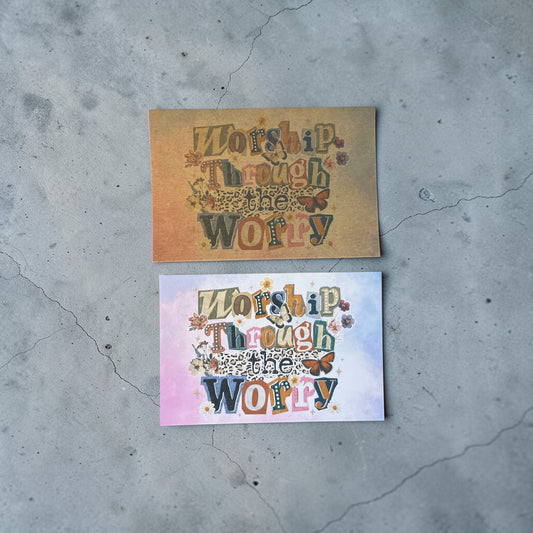 Worship
Through
the
Worry
Worship
Through
the
Worry